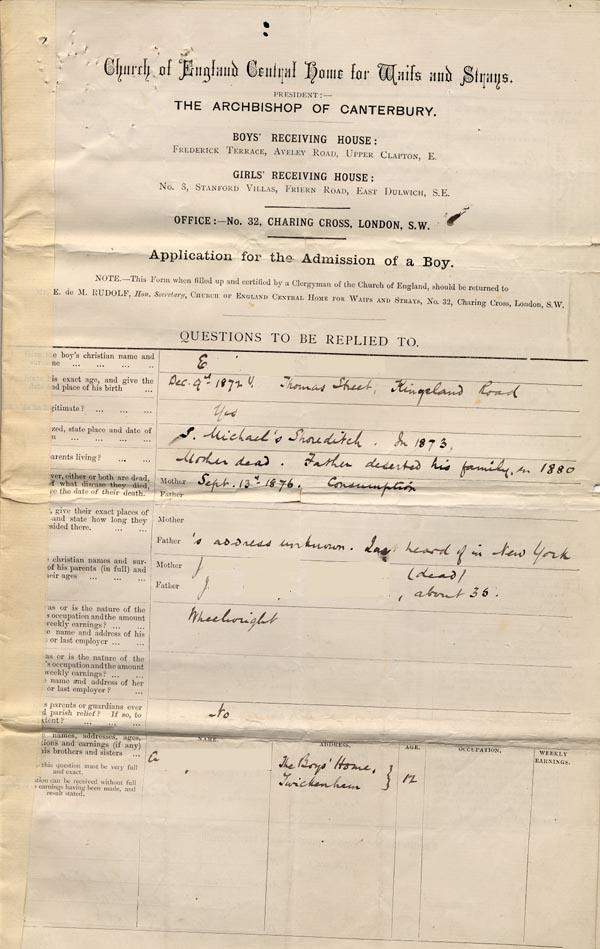 Church of England Central Home for Waifs and Strays.
PRESIDENT:—
THE ARCHBISHOP OF CANTERBURY.
BOYS' RECEIVING HOUSE:
FREDERICK TERRACE, AVELEY ROAD, UPPER CLAPTON, E.
GIRLS' RECEIVING HOUSE:
No. 3, STANFORD VILLAS, FRIERN ROAD, EAST DULWICH, S.E.
OFFICE:—No. 32, CHARING CROSS, LONDON, S.W.
Application for the Admission of a Boy.
NOTE.—This Form when filled up and certified by a Clergyman of the Church of England, should be returned to
E. de M. RUDOLF, Hon. Secretary, CHURCH OF ENGLAND CENTRAL HOME FOR WAIFS AND STRAYS, No. 32, Charing Cross, London, S.W.
QUESTIONS TO BE REPLIED TO.
the boy's christian name and
... ... ... ... E
is exact age, and give the
and place of his birth ... Dec. 9th 1872. Thomas Street, Kingsland Road
gitimate? ... ... ... Yes
zed, state place and date of
... ... ... ... S. Michael's Shoreditch. In 1873.
arents living? ... ... Mother dead. Father deserted his family, in 1880
ver, either or both are dead,
what disease they died, Mother Sept. 13th 1876. Consumption
e the date of their death. Father
, give their exact places of
and state how long they Mother
sided there. ... ...
Father 's address unknown. Last heard of in New York
christian names and sur-
of his parents (in full) and Mother J (dead)
eir ages ... ... ... Father J , about 36.
as or is the nature of the
s occupation and the amount Wheelwright
weekly earnings? ... ...
e name and address of his
or last employer? ...
as or is the nature of the
's occupation and the amount
weekly earnings? ... ...
name and address of her
or last employer? ...
s parents or guardians ever
d parish relief? If so, to No
xtent? ... ... ...
names, addresses, ages,
tions and earnings (if any)
is brothers and sisters ...
NAME. ADDRESS. AGE. OCCUPATION. WEEKLY EARNINGS.
this question must be very full
and exact.
tion can be received without full
earnings having been made, and
result stated.
A The Boys' Home,
Twickenham } 12